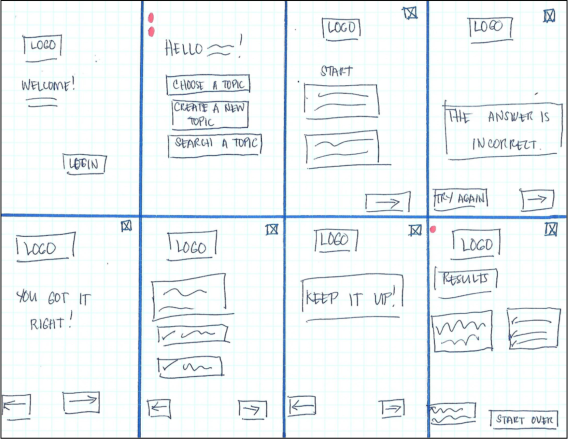 LOGO
WELCOME!
LOGIN
HELLO !
CHOOSE A TOPIC
CREATE A NEW
TOPIC
SEARCH A TOPIC
LOGO
START
LOGO
THE ANSWER IS
INCORRECT.
TRY AGAIN
LOGO
YOU GOT IT
RIGHT!
LOGO
LOGO
KEEP IT UP!
LOGO
RESULTS
START OVER